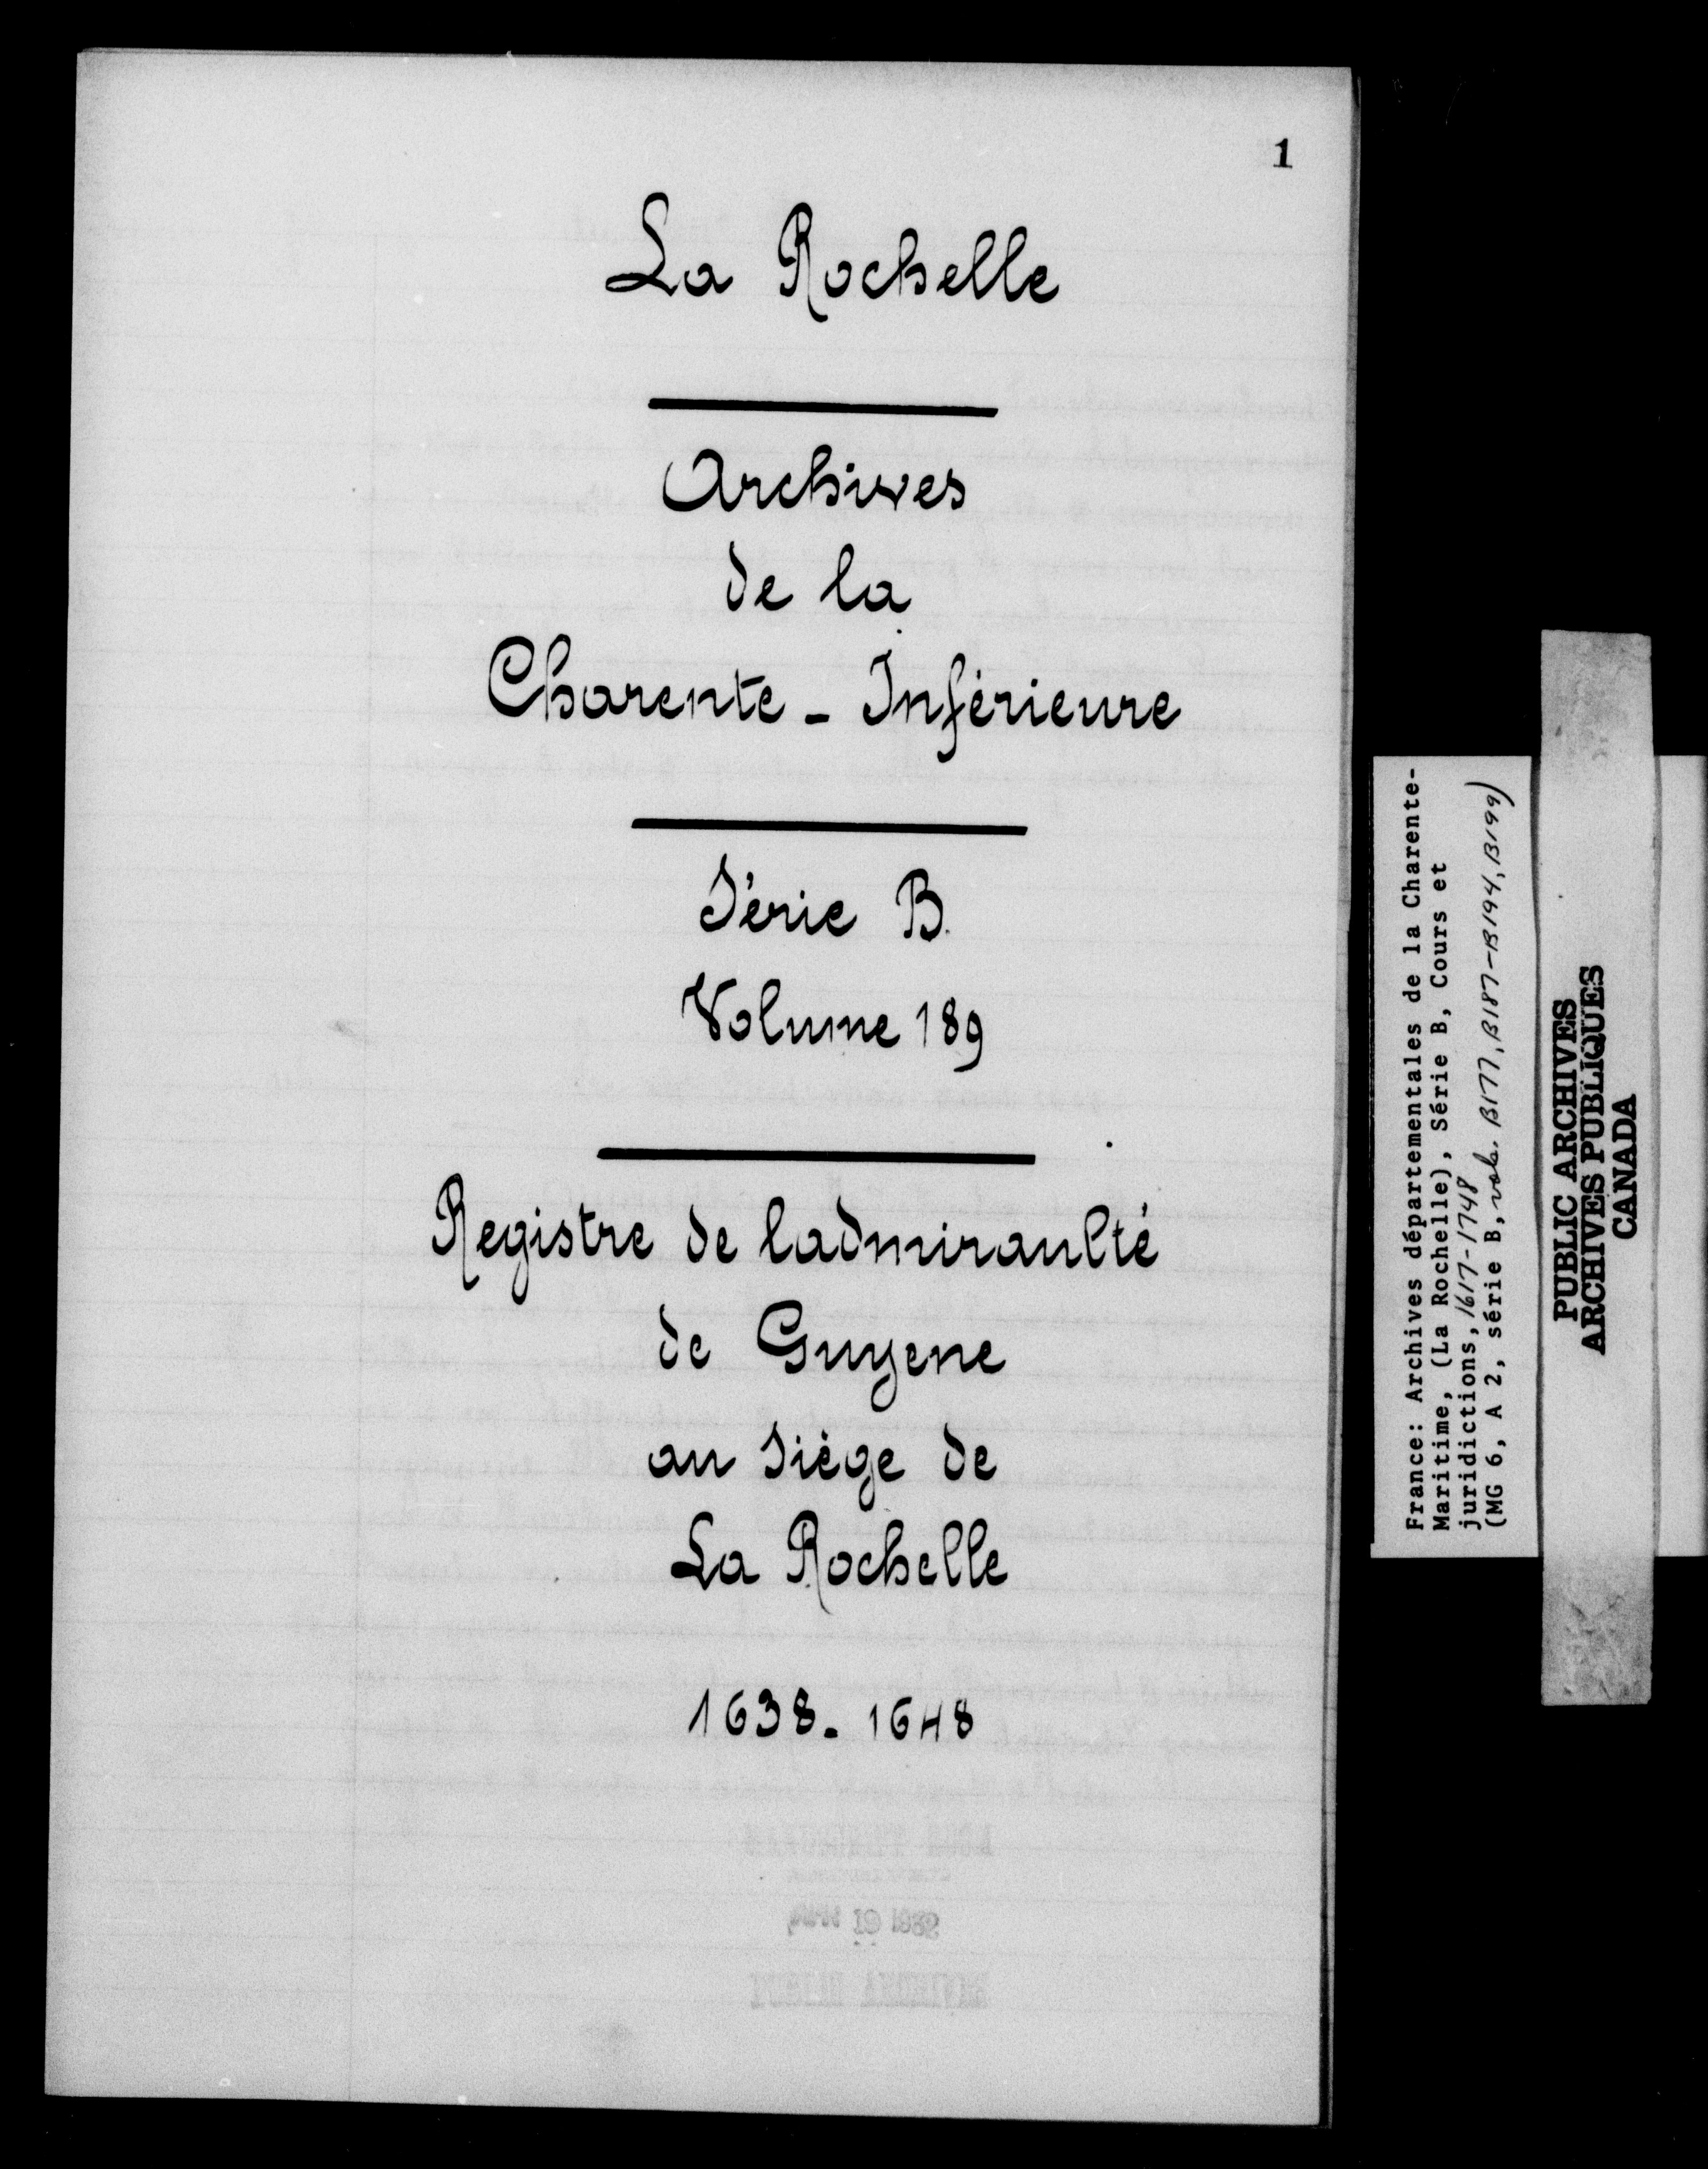 1
La Rochelle
Archives
de la
Charente - Inférieure
Série B.
Volume 189
Registre de ladmiraulté
de Guyene
au Siège de
La Rochelle
1638 - 1648
France: Archives départementales de la Charente-
Maritime, (La Rochelle), Série B, Cours et
juridictions, 1617-1748
(MG 6, A 2, série B, vols. B177, B187-B194, B199)
PUBLIC ARCHIVES
ARCHIVES PUBLIQUES
CANADA